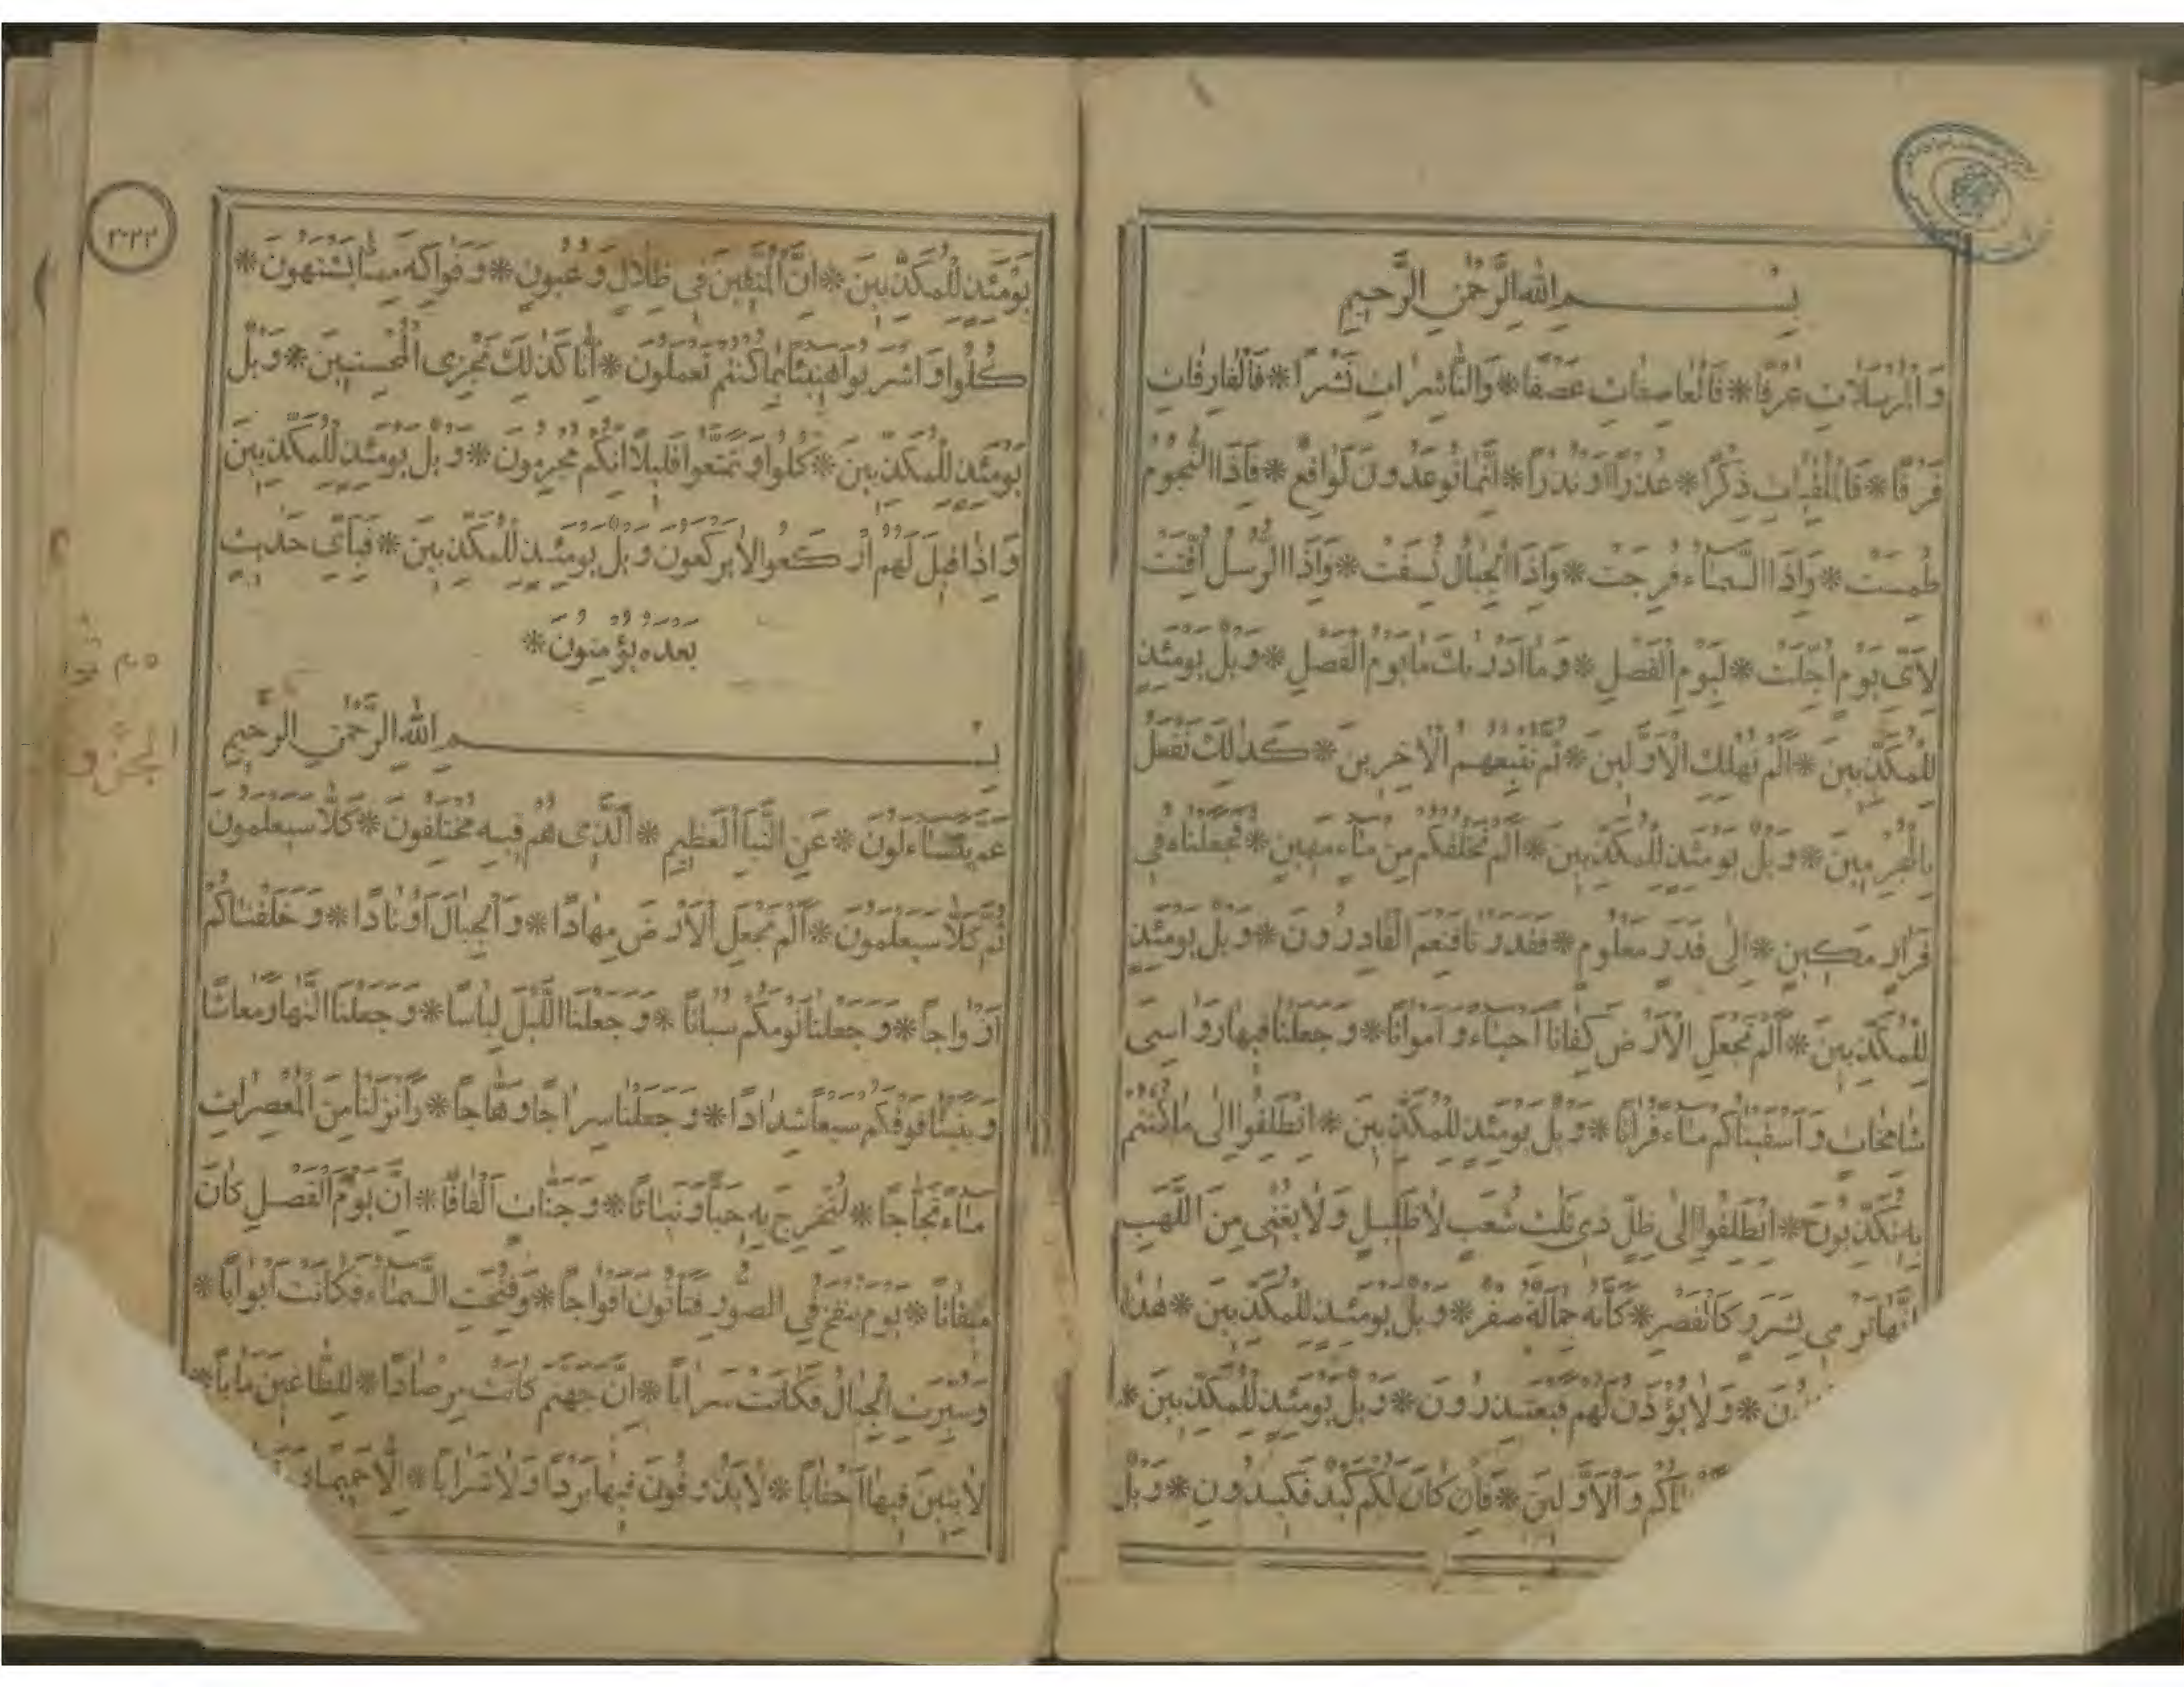 بِسْمِ اللهِ الرَّحْمٰنِ الرَّحِيمِ
وَالْمُرْسَلَاتِ عُرْفًا * فَالْعَاصِفَاتِ عَصْفًا * وَالنَّاشِرَاتِ نَشْرًا * فَالْفَارِقَاتِ
فَرْقًا * فَالْمُلْقِيَاتِ ذِكْرًا * عُذْرًا أَوْ نُذْرًا * إِنَّمَا تُوعَدُونَ لَوَاقِعٌ * فَإِذَا النُّجُومُ
طُمِسَتْ * وَإِذَا السَّمَاءُ فُرِجَتْ * وَإِذَا الْجِبَالُ نُسِفَتْ * وَإِذَا الرُّسُلُ أُقِّتَتْ
لِأَيِّ يَوْمٍ أُجِّلَتْ * لِيَوْمِ الْفَصْلِ * وَمَا أَدْرٰيكَ مَا يَوْمُ الْفَصْلِ * وَيْلٌ يَوْمَئِذٍ
لِلْمُكَذِّبِينَ * أَلَمْ نُهْلِكِ الْأَوَّلِينَ * ثُمَّ نُتْبِعُهُمُ الْآخِرِينَ * كَذٰلِكَ نَفْعَلُ
بِالْمُجْرِمِينَ * وَيْلٌ يَوْمَئِذٍ لِلْمُكَذِّبِينَ * أَلَمْ نَخْلُقْكُمْ مِنْ مَاءٍ مَهِينٍ * فَجَعَلْنَاهُ فِي
قَرَارٍ مَكِينٍ * إِلٰى قَدَرٍ مَعْلُومٍ * فَقَدَرْنَا فَنِعْمَ الْقَادِرُونَ * وَيْلٌ يَوْمَئِذٍ
لِلْمُكَذِّبِينَ * أَلَمْ نَجْعَلِ الْأَرْضَ كِفَاتًا أَحْيَاءً وَأَمْوَاتًا * وَجَعَلْنَا فِيهَا رَوَاسِيَ
شَامِخَاتٍ وَأَسْقَيْنَاكُمْ مَاءً فُرَاتًا * وَيْلٌ يَوْمَئِذٍ لِلْمُكَذِّبِينَ * انْطَلِقُوا إِلٰى مَا كُنْتُمْ
بِهِ تُكَذِّبُونَ * انْطَلِقُوا إِلٰى ظِلٍّ ذِي ثَلٰثِ شُعَبٍ لَا ظَلِيلٍ وَلَا يُغْنِي مِنَ اللَّهَبِ
إِنَّهَا تَرْمِي بِشَرَرٍ كَالْقَصْرِ * كَأَنَّهُ جِمَالَةٌ صُفْرٌ * وَيْلٌ يَوْمَئِذٍ لِلْمُكَذِّبِينَ * هٰذَا
* وَلَا يُؤْذَنُ لَهُمْ فَيَعْتَذِرُونَ * وَيْلٌ يَوْمَئِذٍ لِلْمُكَذِّبِينَ *
وَالْأَوَّلِينَ * فَإِنْ كَانَ لَكُمْ كَيْدٌ فَكِيدُونِ * وَيْلٌ
٣٢٢
يَوْمَئِذٍ لِلْمُكَذِّبِينَ * إِنَّ الْمُتَّقِينَ فِي ظِلَالٍ وَعُيُونٍ * وَفَوَاكِهَ مِمَّا يَشْتَهُونَ *
كُلُوا وَاشْرَبُوا هَنِيئًا بِمَا كُنْتُمْ تَعْمَلُونَ * إِنَّا كَذٰلِكَ نَجْزِي الْمُحْسِنِينَ * وَيْلٌ
يَوْمَئِذٍ لِلْمُكَذِّبِينَ * كُلُوا وَتَمَتَّعُوا قَلِيلًا إِنَّكُمْ مُجْرِمُونَ * وَيْلٌ يَوْمَئِذٍ لِلْمُكَذِّبِينَ
وَإِذَا قِيلَ لَهُمُ ارْكَعُوا لَا يَرْكَعُونَ وَيْلٌ يَوْمَئِذٍ لِلْمُكَذِّبِينَ * فَبِأَيِّ حَدِيثٍ
بَعْدَهُ يُؤْمِنُونَ *
بِسْمِ اللهِ الرَّحْمٰنِ الرَّحِيمِ
عَمَّ يَتَسَاءَلُونَ * عَنِ النَّبَأِ الْعَظِيمِ * الَّذِي هُمْ فِيهِ مُخْتَلِفُونَ * كَلَّا سَيَعْلَمُونَ
ثُمَّ كَلَّا سَيَعْلَمُونَ * أَلَمْ نَجْعَلِ الْأَرْضَ مِهَادًا * وَالْجِبَالَ أَوْتَادًا * وَخَلَقْنَاكُمْ
أَزْوَاجًا * وَجَعَلْنَا نَوْمَكُمْ سُبَاتًا * وَجَعَلْنَا اللَّيْلَ لِبَاسًا * وَجَعَلْنَا النَّهَارَ مَعَاشًا
وَبَنَيْنَا فَوْقَكُمْ سَبْعًا شِدَادًا * وَجَعَلْنَا سِرَاجًا وَهَّاجًا * وَأَنْزَلْنَا مِنَ الْمُعْصِرَاتِ
مَاءً ثَجَّاجًا * لِنُخْرِجَ بِهِ حَبًّا وَنَبَاتًا * وَجَنَّاتٍ أَلْفَافًا * إِنَّ يَوْمَ الْفَصْلِ كَانَ
مِيقَاتًا * يَوْمَ يُنْفَخُ فِي الصُّورِ فَتَأْتُونَ أَفْوَاجًا * وَفُتِحَتِ السَّمَاءُ فَكَانَتْ أَبْوَابًا *
وَسُيِّرَتِ الْجِبَالُ فَكَانَتْ سَرَابًا * إِنَّ جَهَنَّمَ كَانَتْ مِرْصَادًا * لِلطَّاغِينَ مَآبًا *
لَابِثِينَ فِيهَا أَحْقَابًا * لَا يَذُوقُونَ فِيهَا بَرْدًا وَلَا شَرَابًا * إِلَّا حَمِيمًا
الجزو